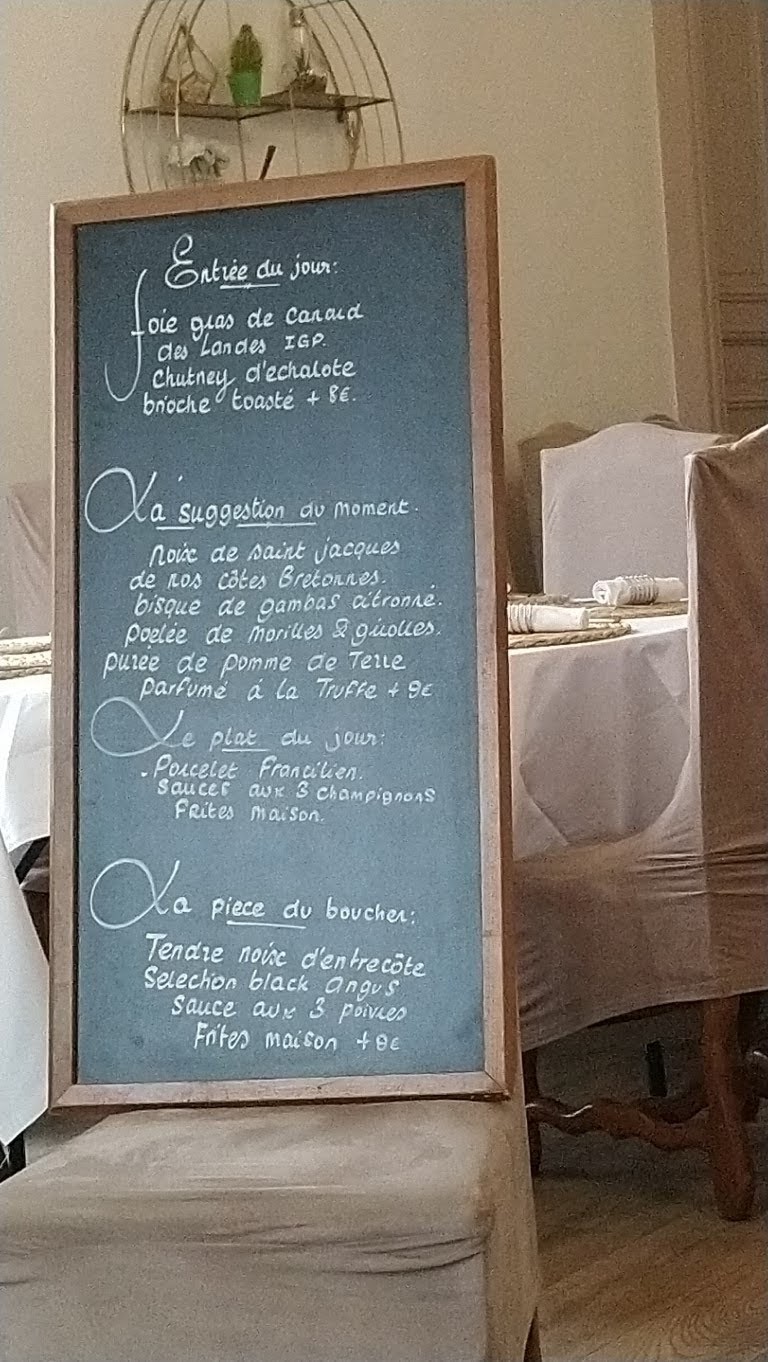 Entrée du jour:
foie gras de canard
des Landes IGP.
Chutney d'echalote
brioche toasté + 8€.
La suggestion du moment.
Noix de saint jacques
de nos côtes Bretonnes.
bisque de gambas citronné.
poelée de morilles & girolles.
purée de pomme de Terre
parfumé á la Truffe + 9€
Le plat du jour:
. Porcelet Francilien.
sauces aux 3 champignons
Frites maison.
La piece du boucher:
Tendre noix d'entrecôte
Selection black angus
sauce aux 3 poivres
Frites maison +8€